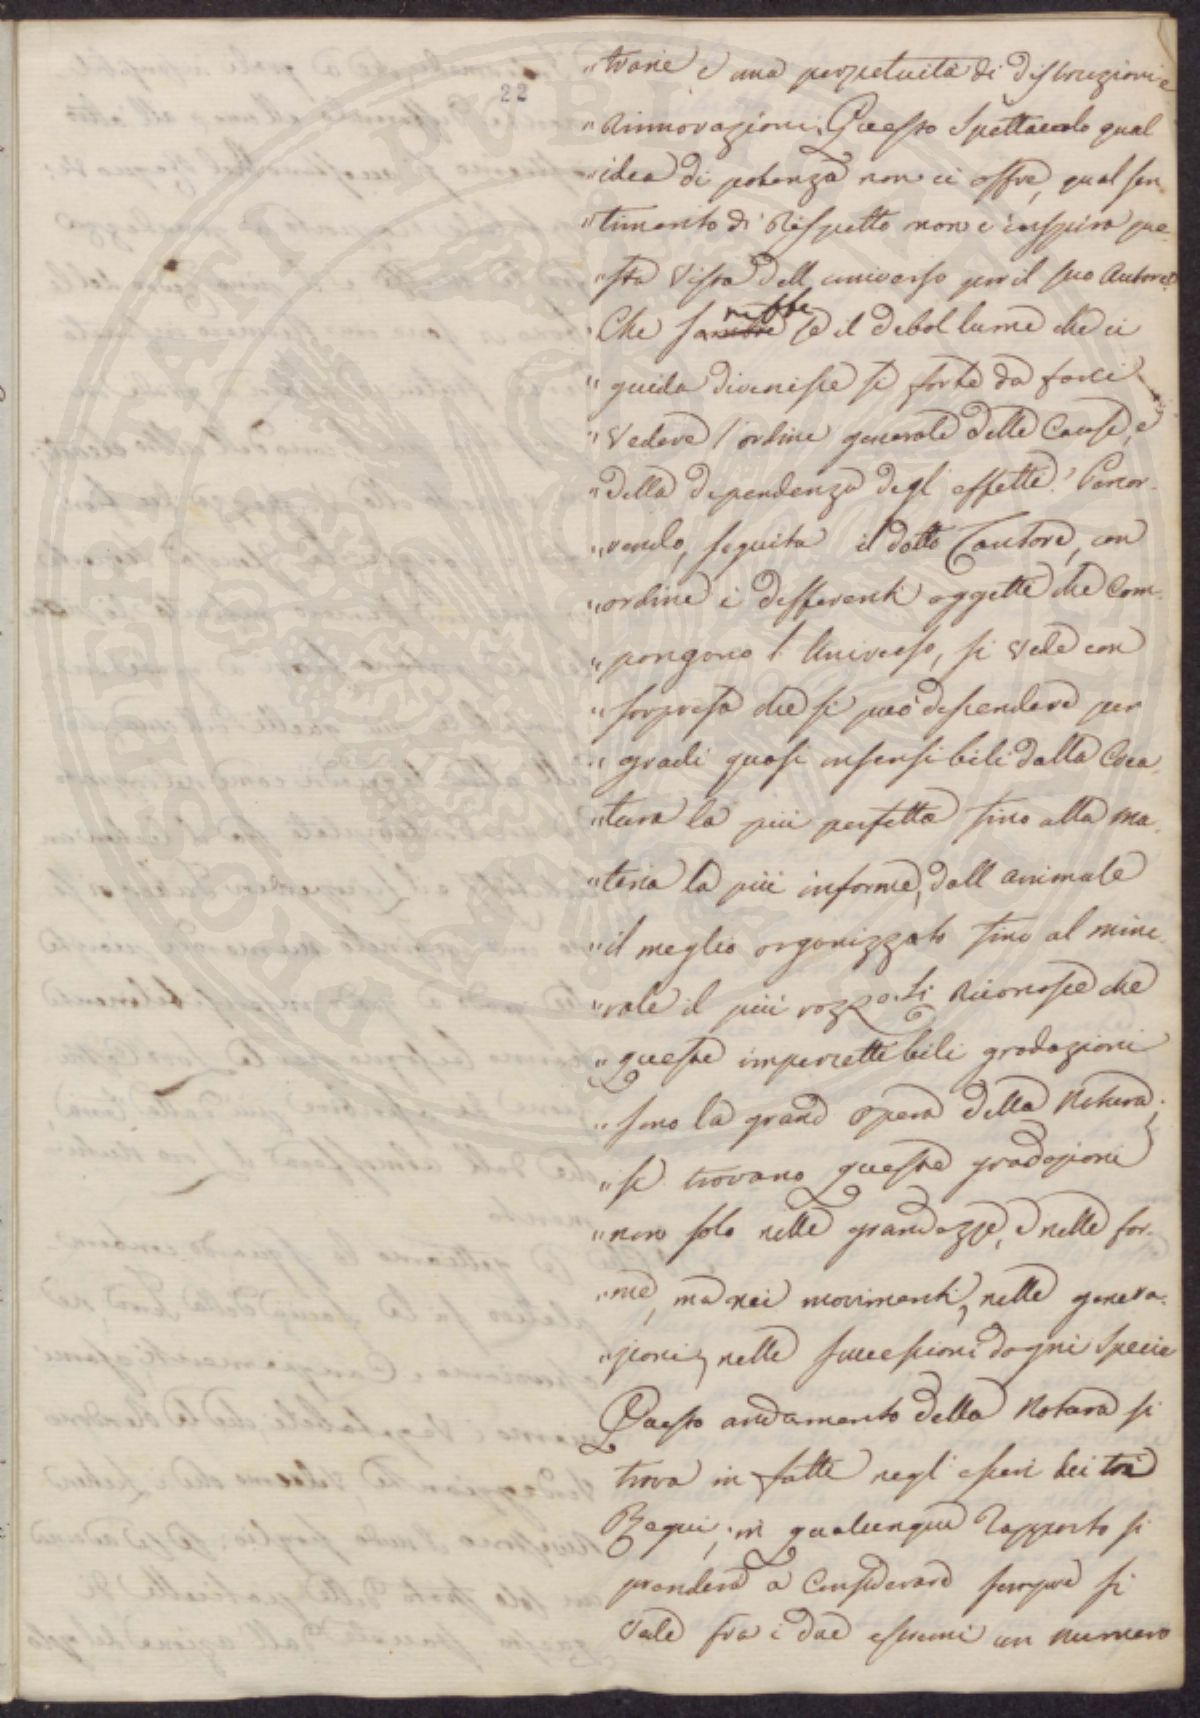 22
"trarie e una perpetuità di distruzioni e
"Rinnovazioni. Questo Spettacolo qual
"idea di potenza non ci offre, qual sen
"timento di Rispetto non c'inspira que-
"sta vista dell universo per il suo Autore?
Che sarebbe se il debol lume che ci
"guida divenisse sì forte da farci
"vedere l'ordine generale delle Cause, e
"della dependenza degl' effetti? Percor-
"rendo, seguita il dotto Autore, con
"ordine i differenti oggetti che com-
"pongono l'Universo, si vede con
"sorpresa che si può descendere per
"gradi quasi insensibili dalla Crea-
"tura la più perfetta fino alla ma-
"teria la più informe, dall animale
"il meglio organizzato fino al mine-
"rale il più rozzo. Si Riconosce che
"queste impercettibili gradazioni
"sono la grand Opera della Natura;
"si trovano queste gradazioni
"non solo nelle grandezze, e nelle for-
"me, ma nei movimenti, nelle genera-
"zioni, nelle successioni d'ogni Specie
Questo andamento della Natura si
trova in fatti negl' esseri dei tre
Regni; in qualunque Rapporto si
prendera a Considerare sempre si
Vede fra i due estremi un numero